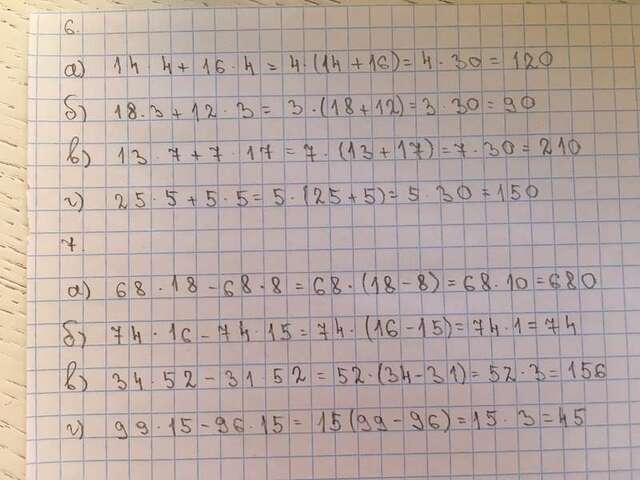 6.
а) 14 4+16·4=4·(14+16)=4·30=120
б) 18·3+12·3=3·(18+12)=3·30=90
в) 13·7+7·17=7·(13+17)=7·30=210
г) 25·5+5·5=5·(25+5)=5·30=150
7
а) 68·18-68·8=68·(18-8)=68·10=680
б) 74·16-74·15=74·(16-15)=74·1=74
в) 34·52-31 52=52·(34-31)=52·3=156
г) 99·15-96·15=15(99-96)=15·3=45